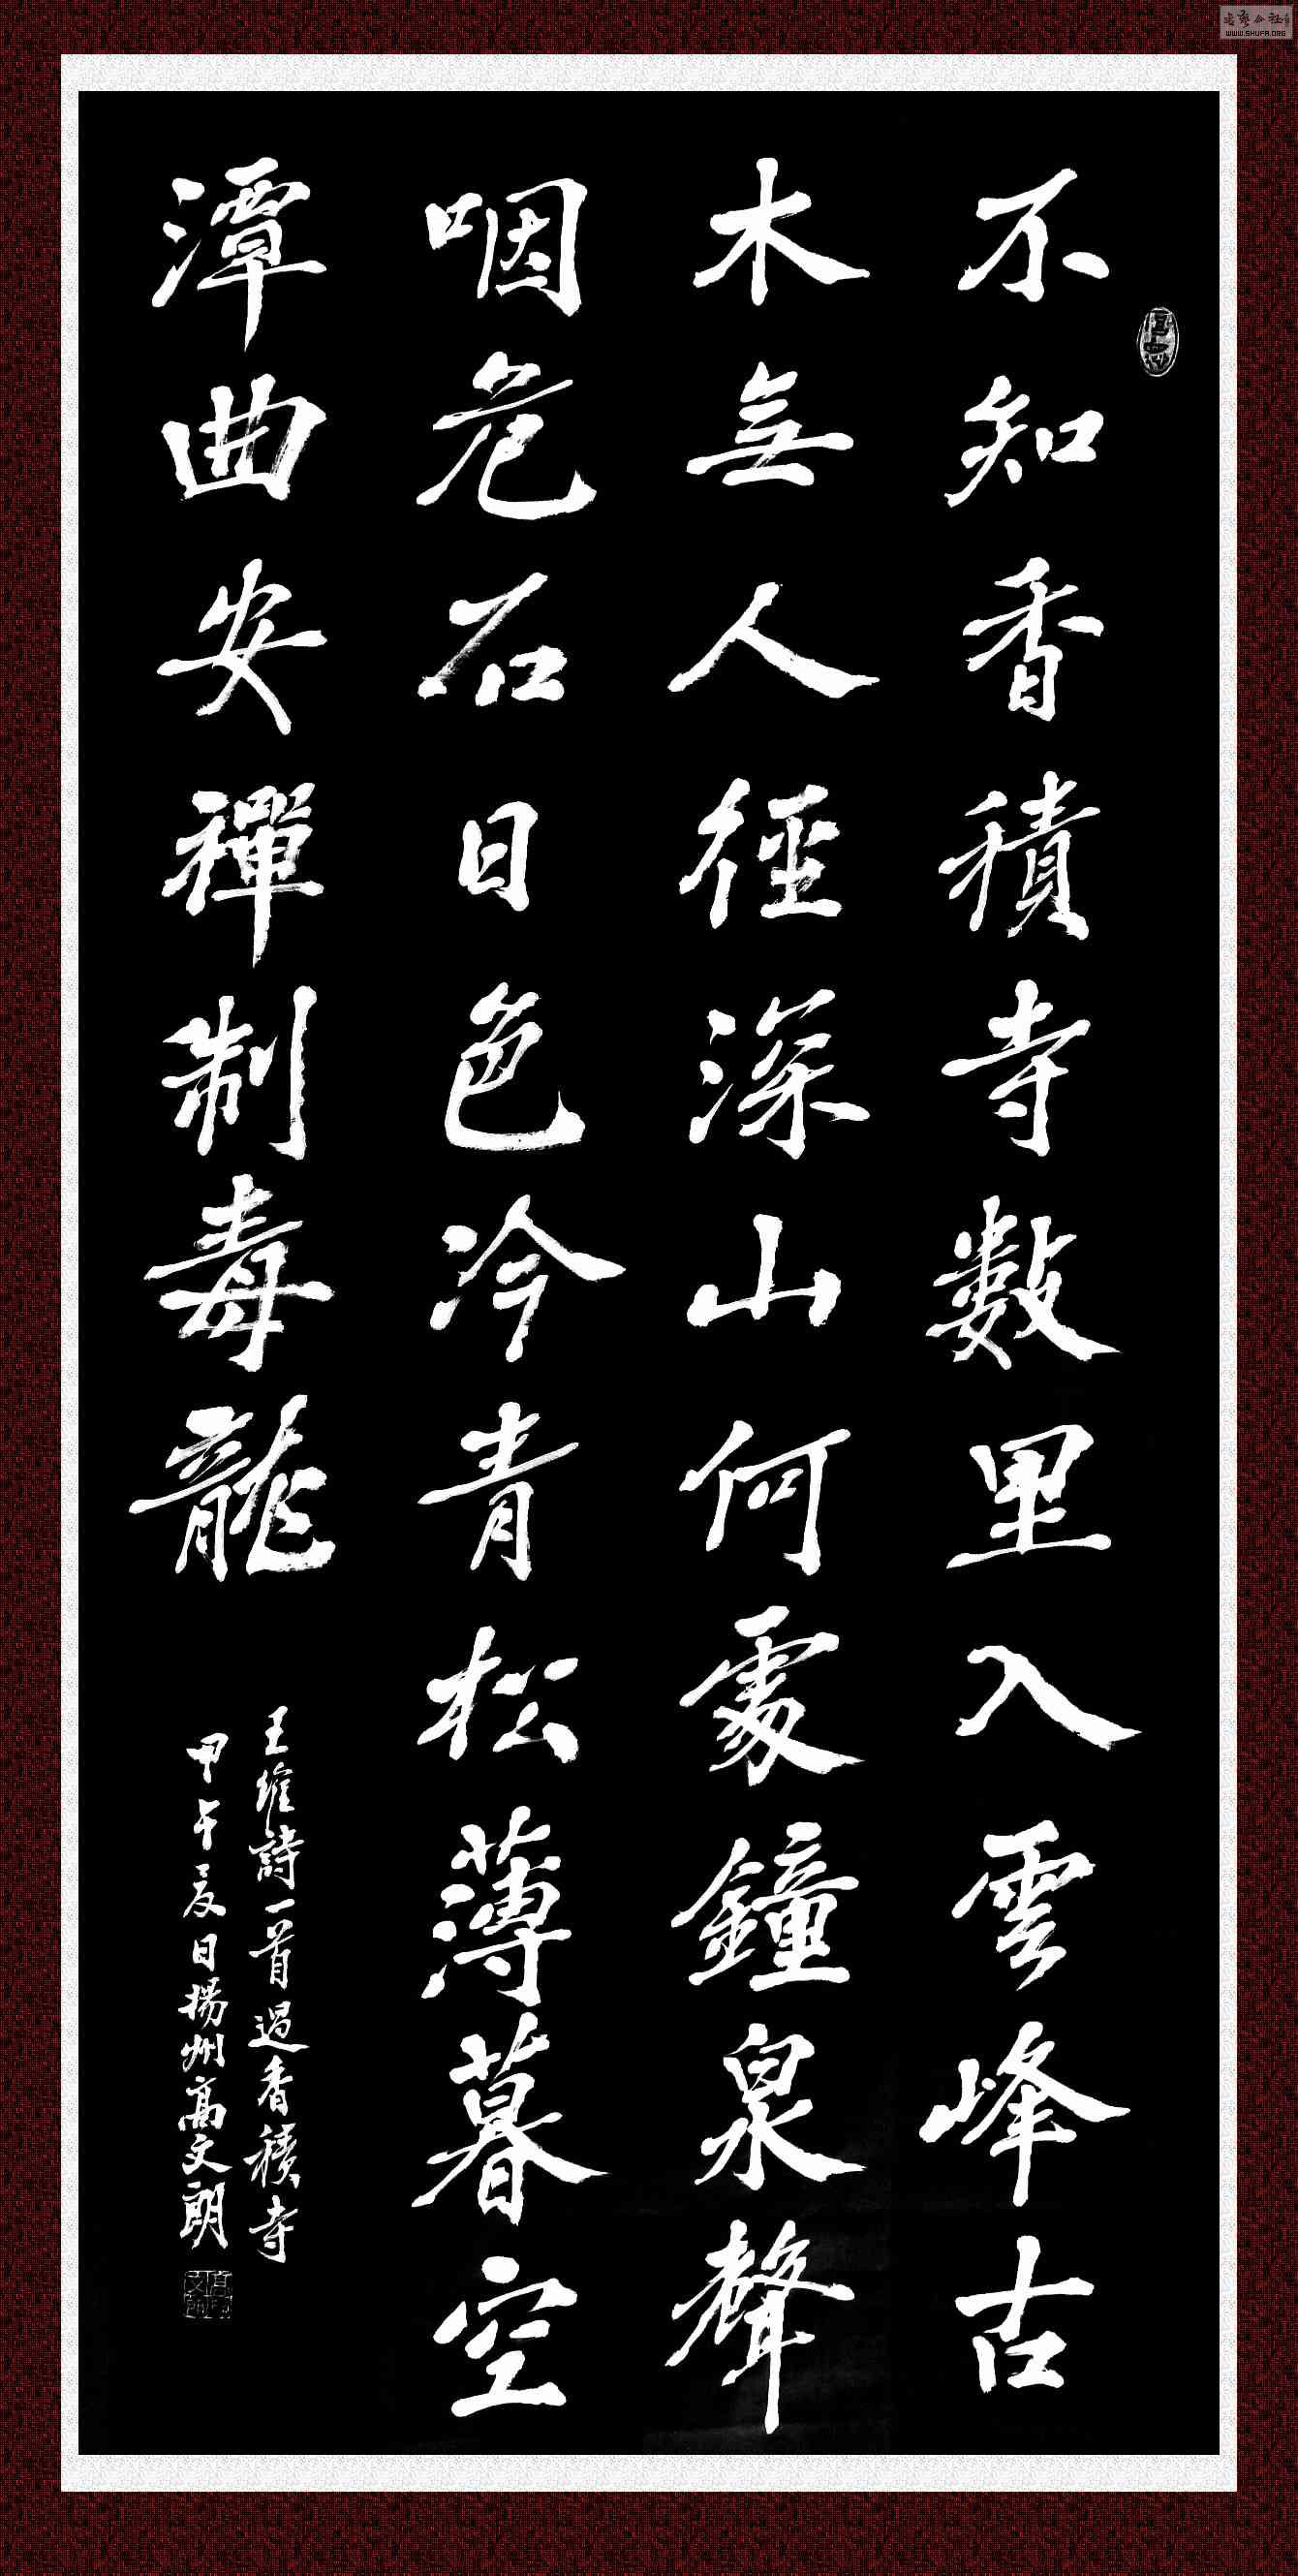 不知香積寺數里入雲峰古
木無人徑深山何處鐘泉聲
咽危石日色冷青松薄暮空
潭曲安禪制毒龍
王維詩一首過香積寺
甲午夏日揚州高文朗
WWW.SHUFA.ORG